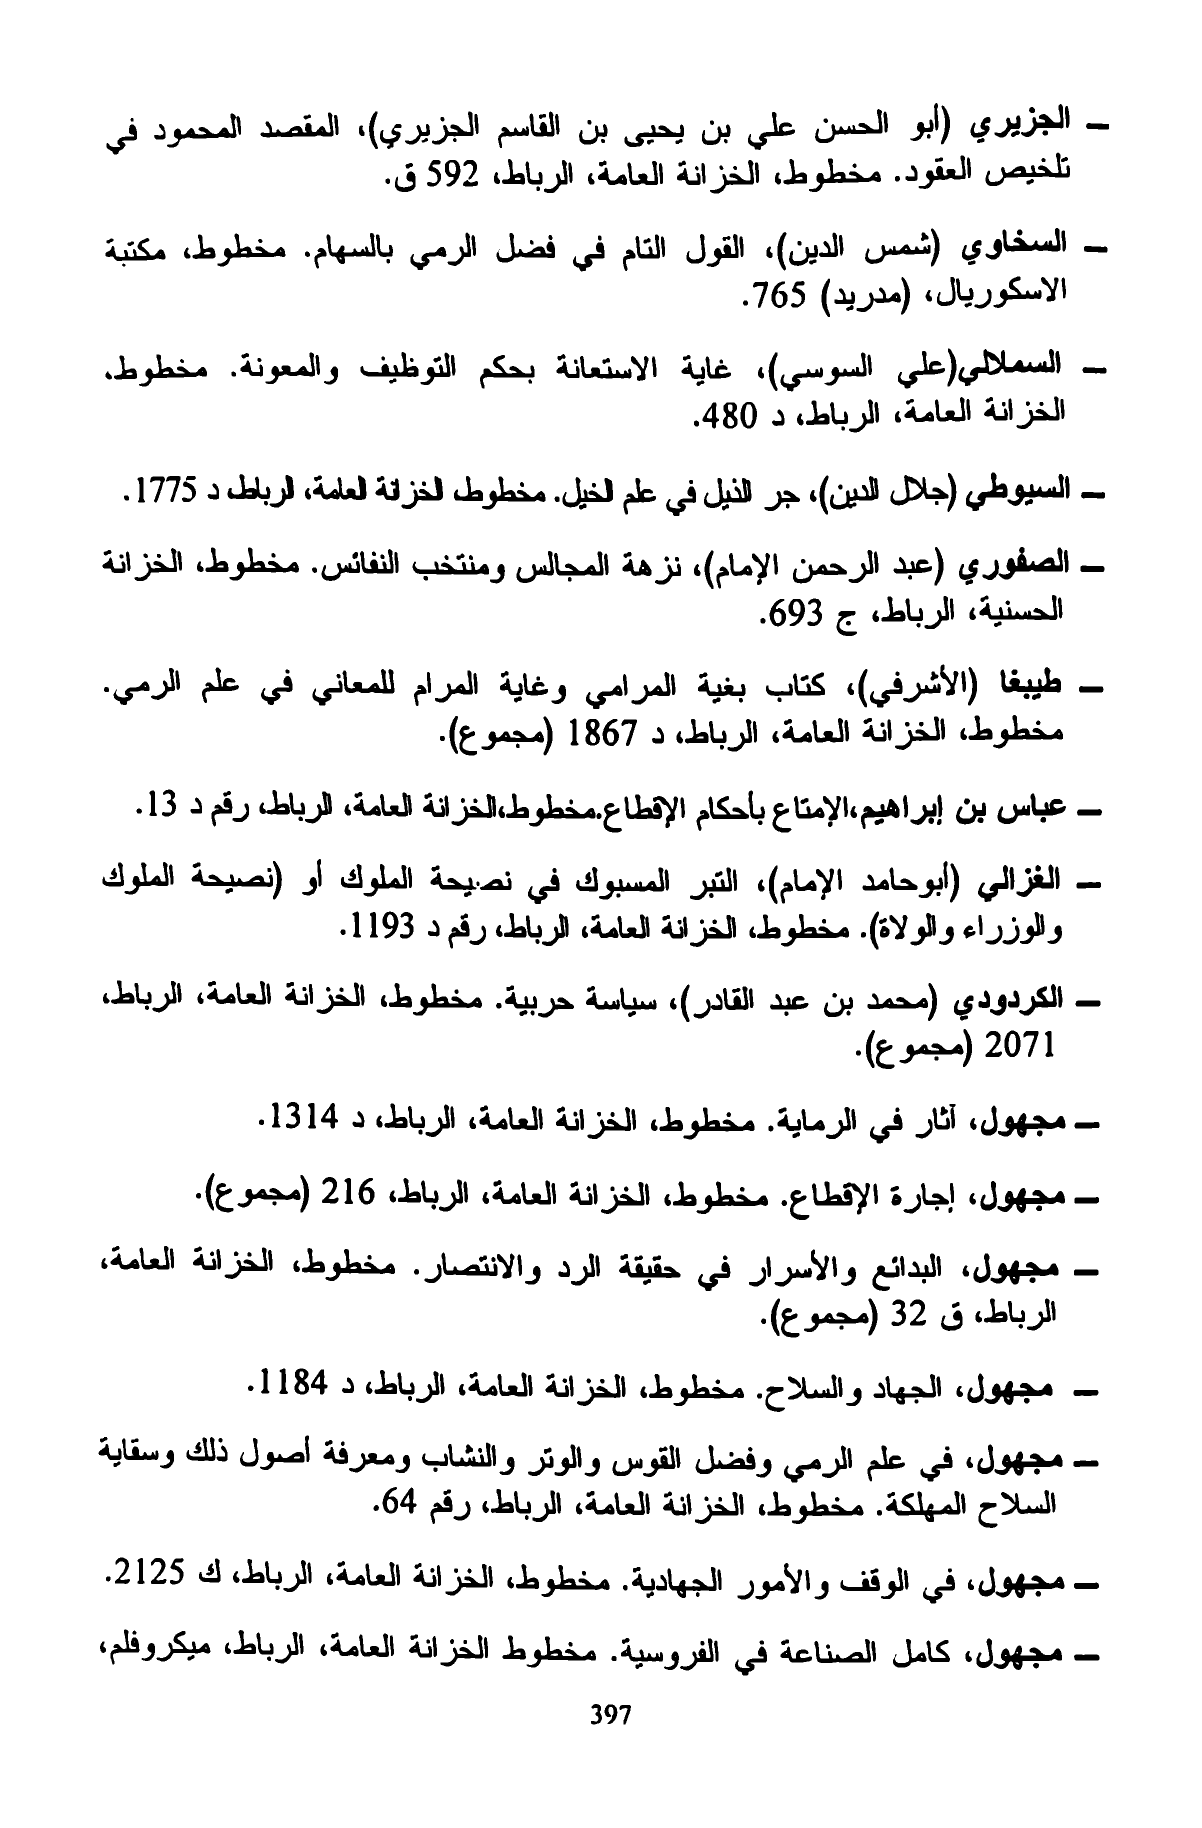 – الجزيري (أبو الحسن علي بن يحيى بن القاسم الجزيري)، المقصد المحمود في
تلخيص العقود. مخطوط، الخزانة العامة، الرباط، 592 ق.
– السخاوي (شمس الدين)، القول التام في فضل الرمي بالسهام. مخطوط، مكتبة
الاسكوريال، (مدريد) 765.
– السملالي(علي السوسي)، غاية الاستعانة بحكم التوظيف والمعونة. مخطوط،
الخزانة العامة، الرباط، د 480.
– السيوطي (جلال الدين)، جر الذيل في علم الخيل. مخطوط، الخزانة العامة، الرباط، د 1775.
– الصفوري (عبد الرحمن الإمام)، نزهة المجالس ومنتخب النفائس. مخطوط، الخزانة
الحسنية، الرباط، ج 693.
– طيبغا (الأشرفي)، كتاب بغية المرامي وغاية المرام للمعاني في علم الرمي.
مخطوط، الخزانة العامة، الرباط، د 1867 (مجموع).
– عباس بن إبراهيم،الإمتاع بأحكام الإقطاع.مخطوط،الخزانة العامة، الرباط، رقم د 13.
– الغزالي (أبوحامد الإمام)، التبر المسبوك في نصيحة الملوك أو (نصيحة الملوك
والوزراء والولاة). مخطوط، الخزانة العامة، الرباط، رقم د 1193.
– الكردودي (محمد بن عبد القادر)، سياسة حربية. مخطوط، الخزانة العامة، الرباط،
2071 (مجموع).
– مجهول، آثار في الرماية. مخطوط، الخزانة العامة، الرباط، د 1314.
– مجهول، إجارة الإقطاع. مخطوط، الخزانة العامة، الرباط، 216 (مجموع).
– مجهول، البدائع والأسرار في حقيقة الرد والانتصار. مخطوط، الخزانة العامة،
الرباط، ق 32 (مجموع).
– مجهول، الجهاد والسلاح. مخطوط، الخزانة العامة، الرباط، د 1184.
– مجهول، في علم الرمي وفضل القوس والوتر والنشاب ومعرفة أصول ذلك وسقاية
السلاح المهلكة. مخطوط، الخزانة العامة، الرباط، رقم 64.
– مجهول، في الوقف والأمور الجهادية. مخطوط، الخزانة العامة، الرباط، ك 2125.
– مجهول، كامل الصناعة في الفروسية. مخطوط الخزانة العامة، الرباط، ميكروفلم،
397